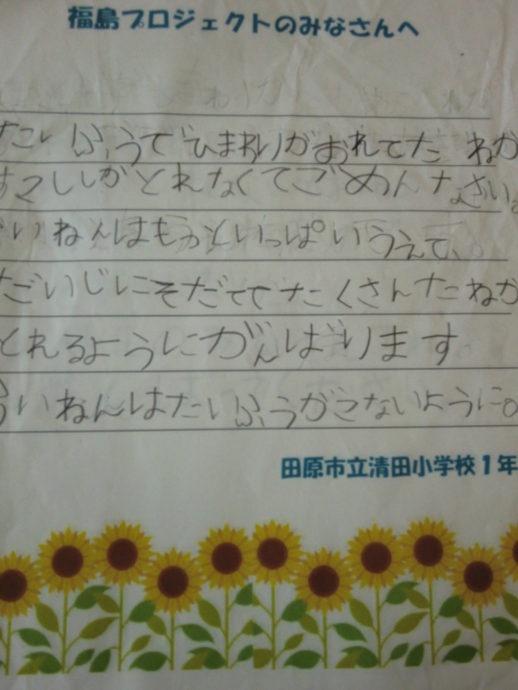 福島プロジェクトのみなさんへ
たいふうでひまわりがおれてたねが
すこししかとれなくてごめんなさい。
いねんはもっといっぱいうえて、
だいじにそだててたくさんたねが
とれるようにがんばります
らいねんはたいふうがこないように。
田原市立清田小学校1年